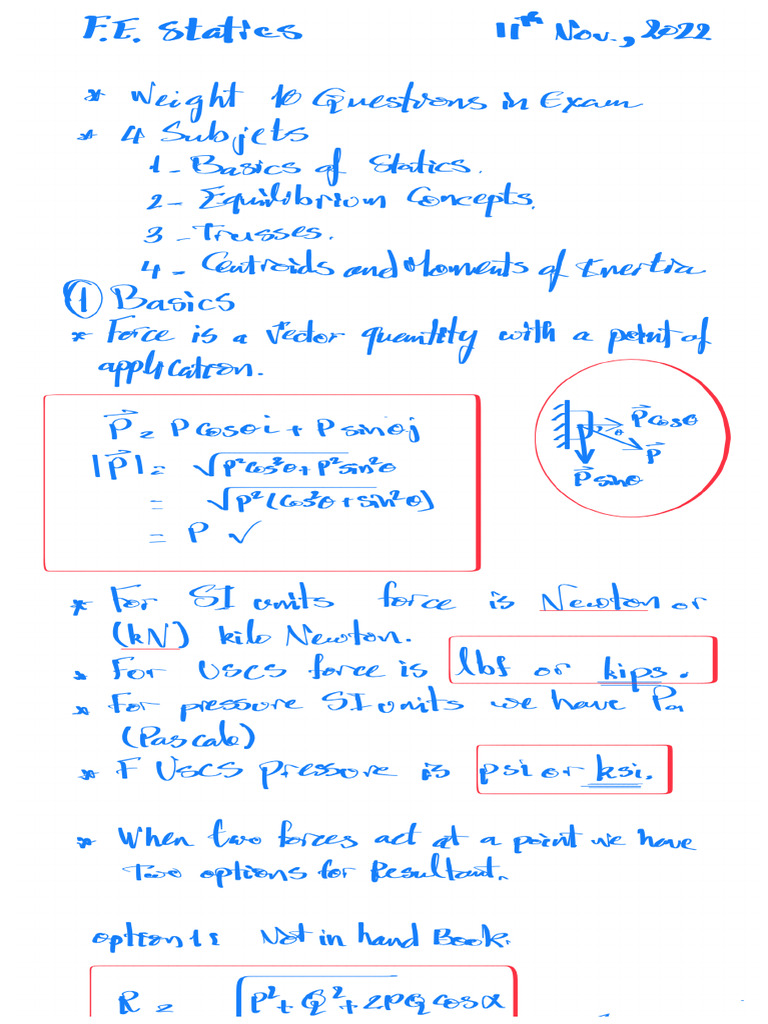 F.E. Statics 11th Nov., 2022
* Weight 10 Questions in Exam
* 4 Subjets
1 - Basics of Statics.
2 - Equilibrium Concepts.
3 - Trusses.
4 - Centroids and Moments of Enertia
① Basics
* Force is a Vector quantity with a point of
application.
P⃗ = P cosθ i + P sinθ j
|P⃗| = √(P²cos²θ + P²sin²θ)
= √(P²(cos²θ + sin²θ))
= P ✓
P⃗cosθ
θ
P⃗
P⃗ sinθ
* For SI units force is Newton or
(kN) kilo Newton.
* For USCS force is lbf or kips.
* For pressure SI units we have Pa
(Pascale)
* F USCS pressure is psi or ksi.
* When two forces act at a point we have
Two options for Resultant.
option 1: Not in hand Book.
R = √(P² + Q² + 2PQ cosα